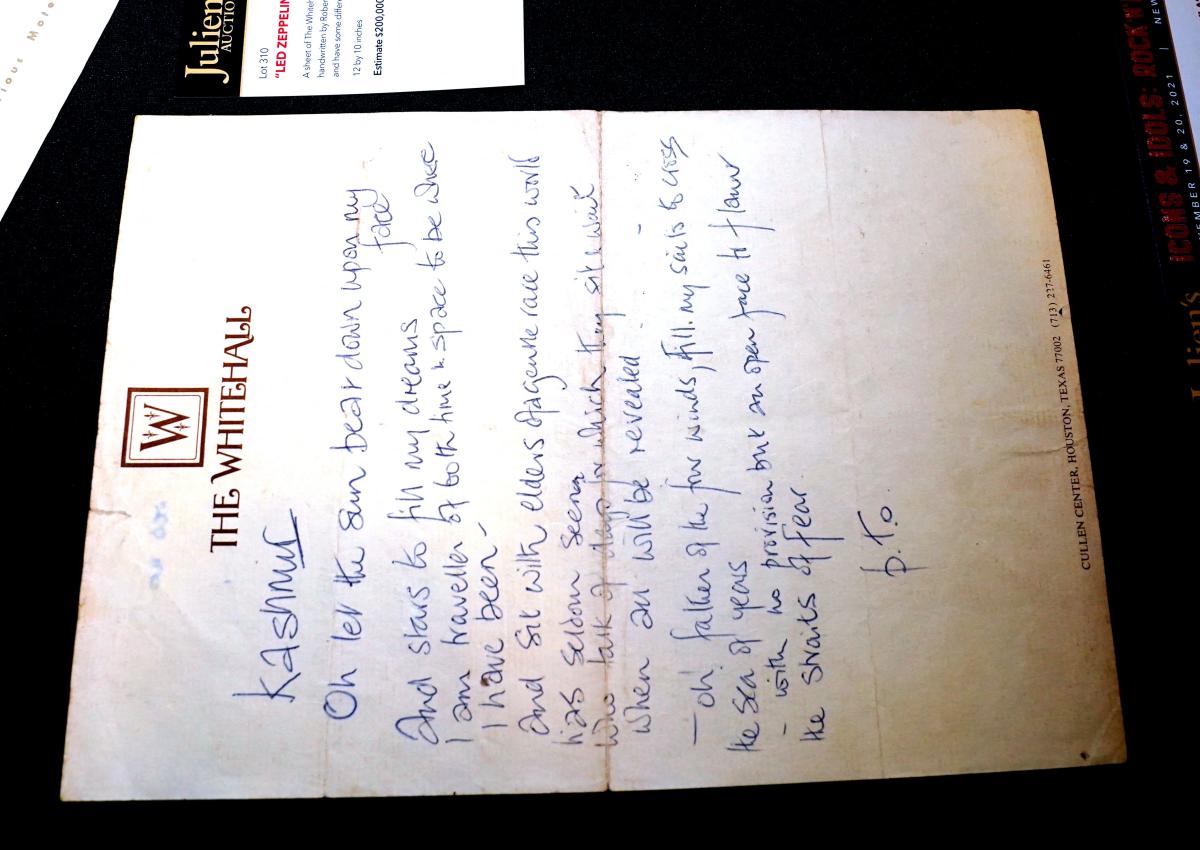 Julien
AUCTIO
Lot 310
"LED ZEPPELIN
A sheet of The Whiteh
handwritten by Rober
and have some differe
12 by 10 inches
Estimate $200,000
W
THE WHITEHALL
KASHMIR
Oh let the sun beat down upon my
face
And stars to fill my dreams
I am traveller of both time & space to be where
I have been -
and sit with elders of a genne race this world
has seldom seen
who talk of days for which they sit & wait
when all will be revealed -
- oh! father of the four winds, fill my sails to cross
the sea of years
- with no provision but an open face
the straits of fear
P.T.O.
CULLEN CENTER, HOUSTON, TEXAS 77002 (713) 227-6461
ICONS & IDOLS: ROCK N'
EMBER 19 & 20, 2021 | NEW
Julien's